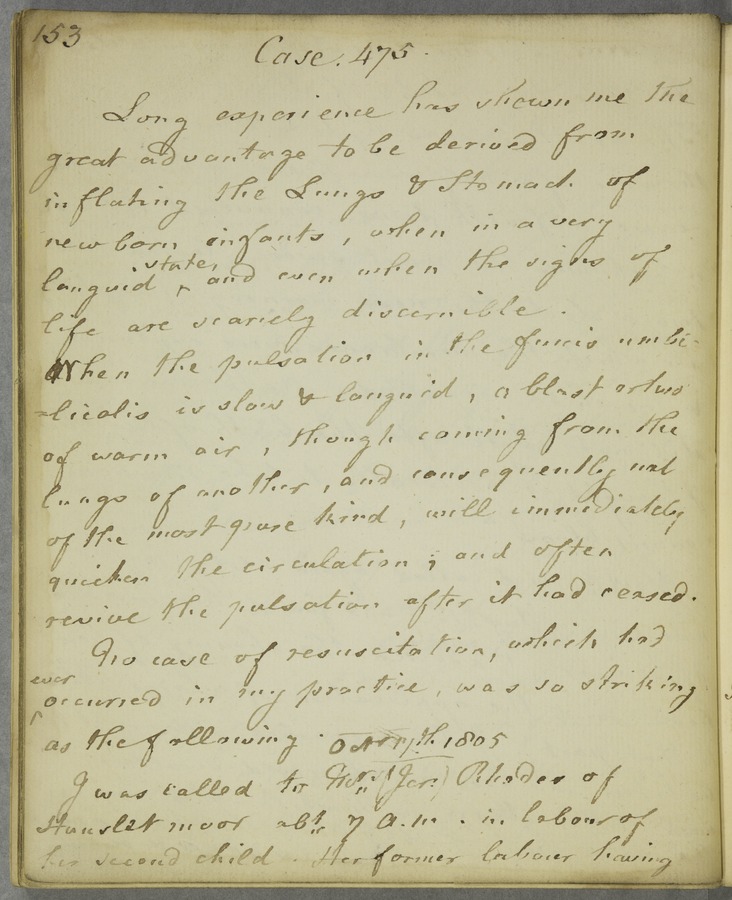 153
Case. 475.
Long experience has shewn me the
great advantage to be derived from
inflating the Lungs & Stomach of
new born infants, when in a very
languid state, and even when the signs of
life are scarcely discernible.
When the pulsation in the funis umbi-
-licalis is slow & languid, a blast or two
of warm air, though coming from the
lungs of another, and consequently not
of the most pure kind, will immediately
quicken the circulation; and often
revive the pulsation after it had ceased.
No case of resuscitation, which had
ever occurred in my practice, was so striking
as the following. 1805
I was called to Rhodes of
Hunslet moor abt. 7 a.m. in labour of
her second child. Her former labour having